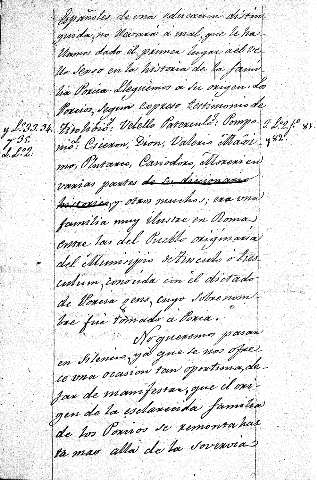 Españoles de una educacion distin-
guida, no llevará á mal, que le ha-
llamos dado el primer lugar al be-
llo Senso en la historia de la fami-
lia Porcia Lleguemos á su origen. Los
Porcios, segun expreso testimonio de
Tito Livio: Veleyo Paterculo: Pompo-
nio: Ciceron, Dion, Valerio Máxi-
mo, Plutarco, Casiodoro, Moreri en
varias partes de su diccionario
historico, y otros muchos; era una
familia muy ilustre en Roma
entre las del Pueblo originaria
del Municipio de
culum, conocida con el dictado
de Porcia gens, cuyo sobrenom-
bre fué tomado á Porca.
No queremos pasar
en silencio, ya que se nos ofre-
ce una ocasion tan oportuna, de-
jar de manifestar, que el ori-
gen de la esclarecida familia
de los Porcios se remonta has-
ta mas allá de la sovervia
y 35.